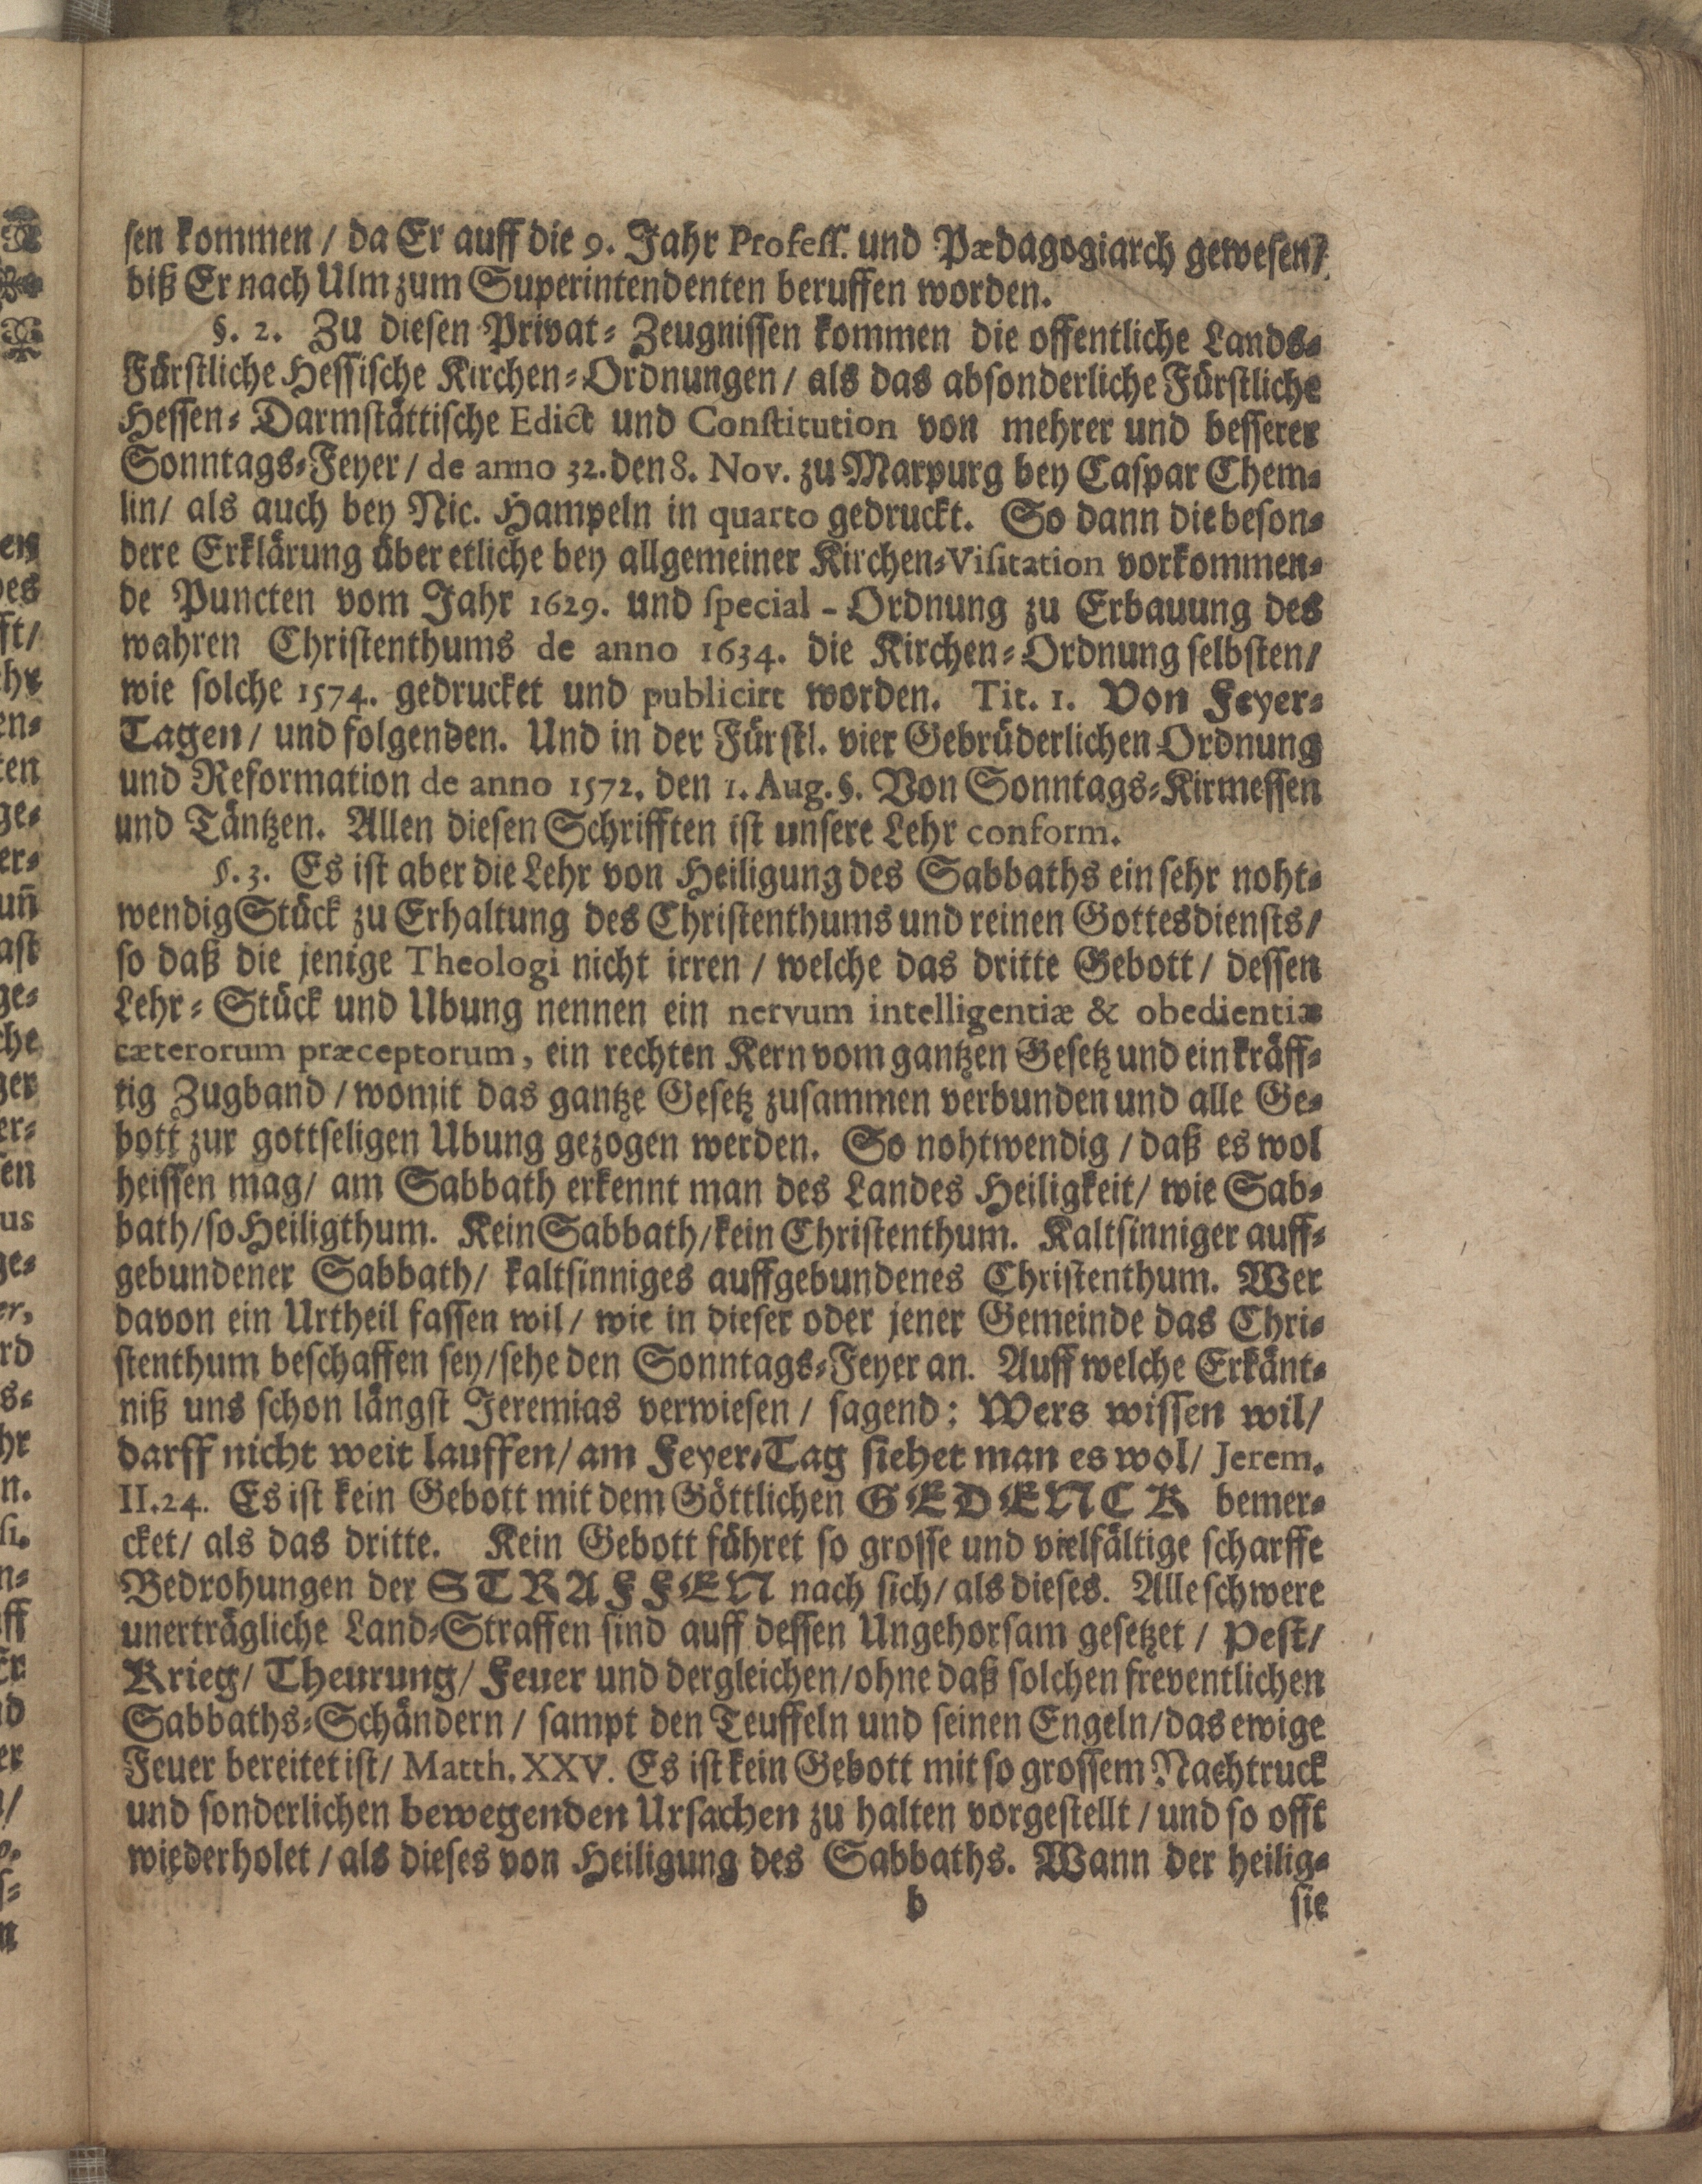 sen kommen / da Er auff die 9. Jahr Profess. und Pædagogiarch gewesen /
biß Er nach Ulm zum Superintendenten beruffen worden.
§. 2. Zu diesen Privat-Zeugnissen kommen die offentliche Lands-
Fürstliche Hessische Kirchen-Ordnungen / als das absonderliche Fürstliche
Hessen-Darmstättische Edict und Constitution von mehrer und besserer
Sonntags-Feyer / de anno 32. den 8. Nov. zu Marpurg bey Caspar Chem-
lin / als auch bey Nic. Hampeln in quarto gedruckt. So dann die beson-
dere Erklärung über etliche bey allgemeiner Kirchen-Visitation vorkommen-
de Puncten vom Jahr 1629. und special-Ordnung zu Erbauung des
wahren Christenthums de anno 1634. die Kirchen-Ordnung selbsten /
wie solche 1574. gedrucket und publicirt worden. Tit. 1. Von Feyer-
Tagen / und folgenden. Und in der Fürstl. vier Gebrüderlichen Ordnung
und Reformation de anno 1572. den 1. Aug. §. Von Sonntags-Kirmessen
und Täntzen. Allen diesen Schrifften ist unsere Lehr conform.
§. 3. Es ist aber die Lehr von Heiligung des Sabbaths ein sehr noht-
wendig Stück zu Erhaltung des Christenthums und reinen Gottesdiensts /
so daß die jenige Theologi nicht irren / welche das dritte Gebott / dessen
Lehr-Stück und Ubung nennen ein nervum intelligentiæ & obedientiæ
cæterorum præceptorum, ein rechten Kern vom gantzen Gesetz und ein kräff-
tig Zugband / womit das gantze Gesetz zusammen verbunden und alle Ge-
bott zur gottseligen Ubung gezogen werden. So nohtwendig / daß es wol
heissen mag / am Sabbath erkennt man des Landes Heiligkeit / wie Sab-
bath / so Heiligthum. Kein Sabbath / kein Christenthum. Kaltsinniger auff-
gebundener Sabbath / kaltsinniges auffgebundenes Christenthum. Wer
davon ein Urtheil fassen wil / wie in dieser oder jener Gemeinde das Chri-
stenthum beschaffen sey / sehe den Sonntags-Feyer an. Auff welche Erkänt-
niß uns schon längst Jeremias verwiesen / sagend: Wers wissen wil /
darff nicht weit lauffen / am Feyer-Tag siehet man es wol / Jerem.
II. 24. Es ist kein Gebott mit dem Göttlichen GEDENCK bemer-
cket / als das dritte. Kein Gebott führet so grosse und vielfältige scharffe
Bedrohungen der STRAFFEN nach sich / als dieses. Alle schwere
unerträgliche Land-Straffen sind auff dessen Ungehorsam gesetzet / Pest /
Krieg / Theurung / Feuer und dergleichen / ohne daß solchen freventlichen
Sabbaths-Schändern / sampt den Teuffeln und seinen Engeln / das ewige
Feuer bereitet ist / Matth. XXV. Es ist kein Gebott mit so grossem Nachtruck
und sonderlichen bewegenden Ursachen zu halten vorgestellt / und so offt
wiederholet / als dieses von Heiligung des Sabbaths. Wann der heilig-
b sie